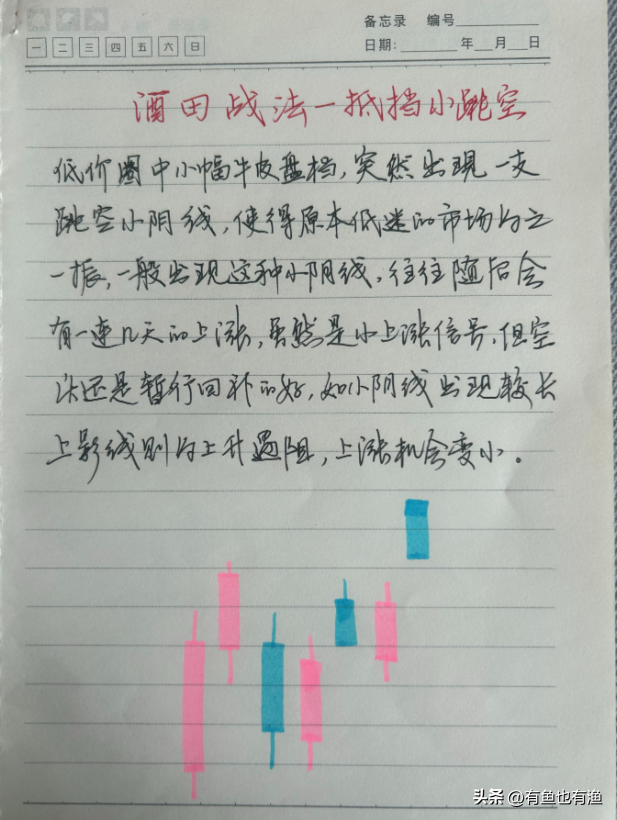 备忘录 编号
一 二 三 四 五 六 日
日期: 年 月 日
酒田战法一抵挡小跳空
低价圈中小幅牛皮盘档,突然出现一支
跳空小阴线,使得原本低迷的市场为之
一振,一般出现这种小阴线,往往随后会
有一连几天的上涨,虽然是小上涨信号,但空
头还是暂行回补的好,如小阴线出现较长
上影线则为上升遇阻,上涨机会变小。
头条 @有鱼也有渔